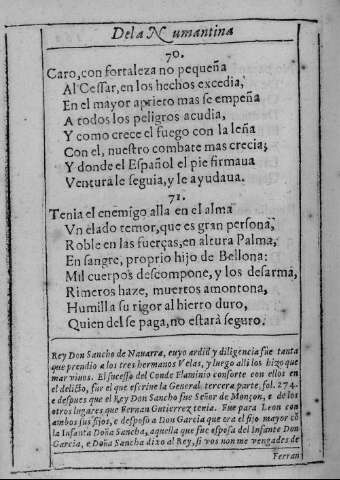 De la Numantina
70.
Caro, con fortaleza no pequeña
Al Cessar, en los hechos excedia,
En el mayor aprieto mas se empeña
A todos los peligros acudia,
Y como crece el fuego con la leña
Con el, nuestro combate mas crecia;
Y donde el Español el pie firmaua
Ventura le seguia, y le ayudaua.
71.
Tenia el enemigo alla en el alma
Vn elado temor, que es gran persona,
Roble en las fuerças, en altura Palma,
En sangre, proprio hijo de Bellona:
Mil cuerpos descompone, y los desarma,
Rimeros haze, muertos amontona,
Humilla su rigor al hierro duro,
Quien del se paga, no estarà seguro.
Rey Don Sancho de Nauarra, cuyo ardid y diligencia fue tanta
que prendio a los tres hermanos Velas, y luego alli los hizo que
mar viuos. El sucesso del Conde Flaminio consorte con ellos en
el delicto, fue el que escriue la General. tercera parte, fol. 274.
e despues que el Rey Don Sancho fue Señor de Monçon, e de los
otros lugares que Fernan Gutierrez tenia. Fue para Leon con
ambos sus fijos, e desposò a Don Garcia que era el fijo mayor cõ
la Infanta Doña Sancha, aquella que fue esposa del Infante Don
Garcia, e Doña Sancha dixo al Rey, si vos non me vengades de
Ferran